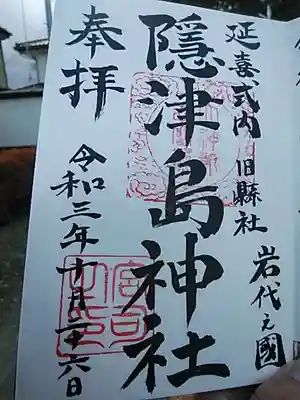 延喜式内 旧縣社
岩代之國
隠津島神社
奉拝
令和三年十月二十六日